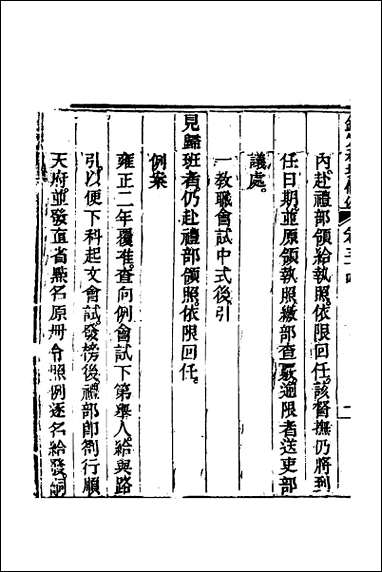 欽定科場條例 卷五十四
內赴禮部領給執照依限回任該督撫仍將到
任日期並原領執照繳部查覈逾限者送吏部
議處
一教職會試中式後引
見歸班者仍赴禮部領照依限回任
例案
雍正二年覆准查向例會試下第舉人給與路
引以便下科起文會試發榜後禮部卽劄行順
天府並發直省點名原册令照例逐名給發詞